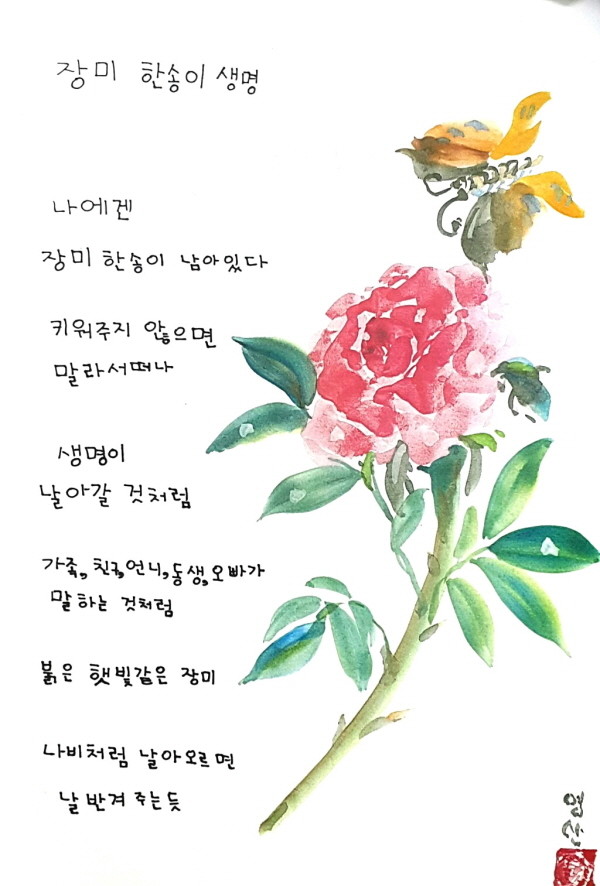 장미 한송이 생명
나에겐
장미 한송이 남아있다
키워주지 않으면
말라서떠나
생명이
날아갈 것처럼
가족, 친구, 언니, 동생, 오빠가
말하는 것처럼
붉은 햇빛같은 장미
나비처럼 날아오르면
날 반겨 주는듯